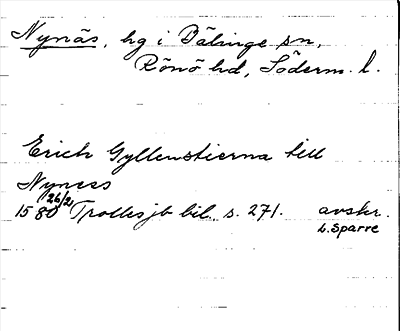 Nynäs, hg i Bälinge sn,
Rönö hd, Söderm. l.
Erich Gyllenstierna till
Nyness
1580 26/2 Trollesjb bil. s. 271. avskr.
L. Sparre